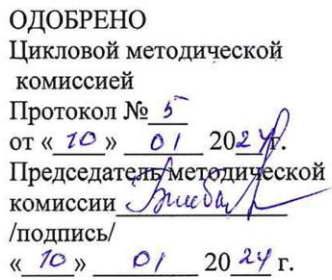 ОДОБРЕНО
Цикловой методической
комиссией
Протокол № 5
от « 10 » 01 2024г.
Председатель методической
комиссии
/подпись/
« 10 » 01 20 24 г.